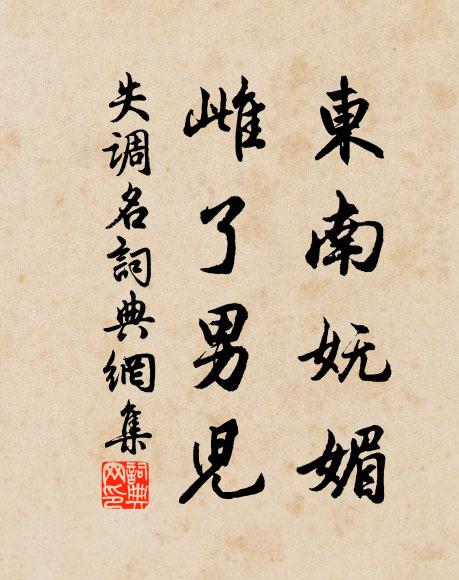 東南妩媚
雌了男兒
失调名詞典網集
詞典网印